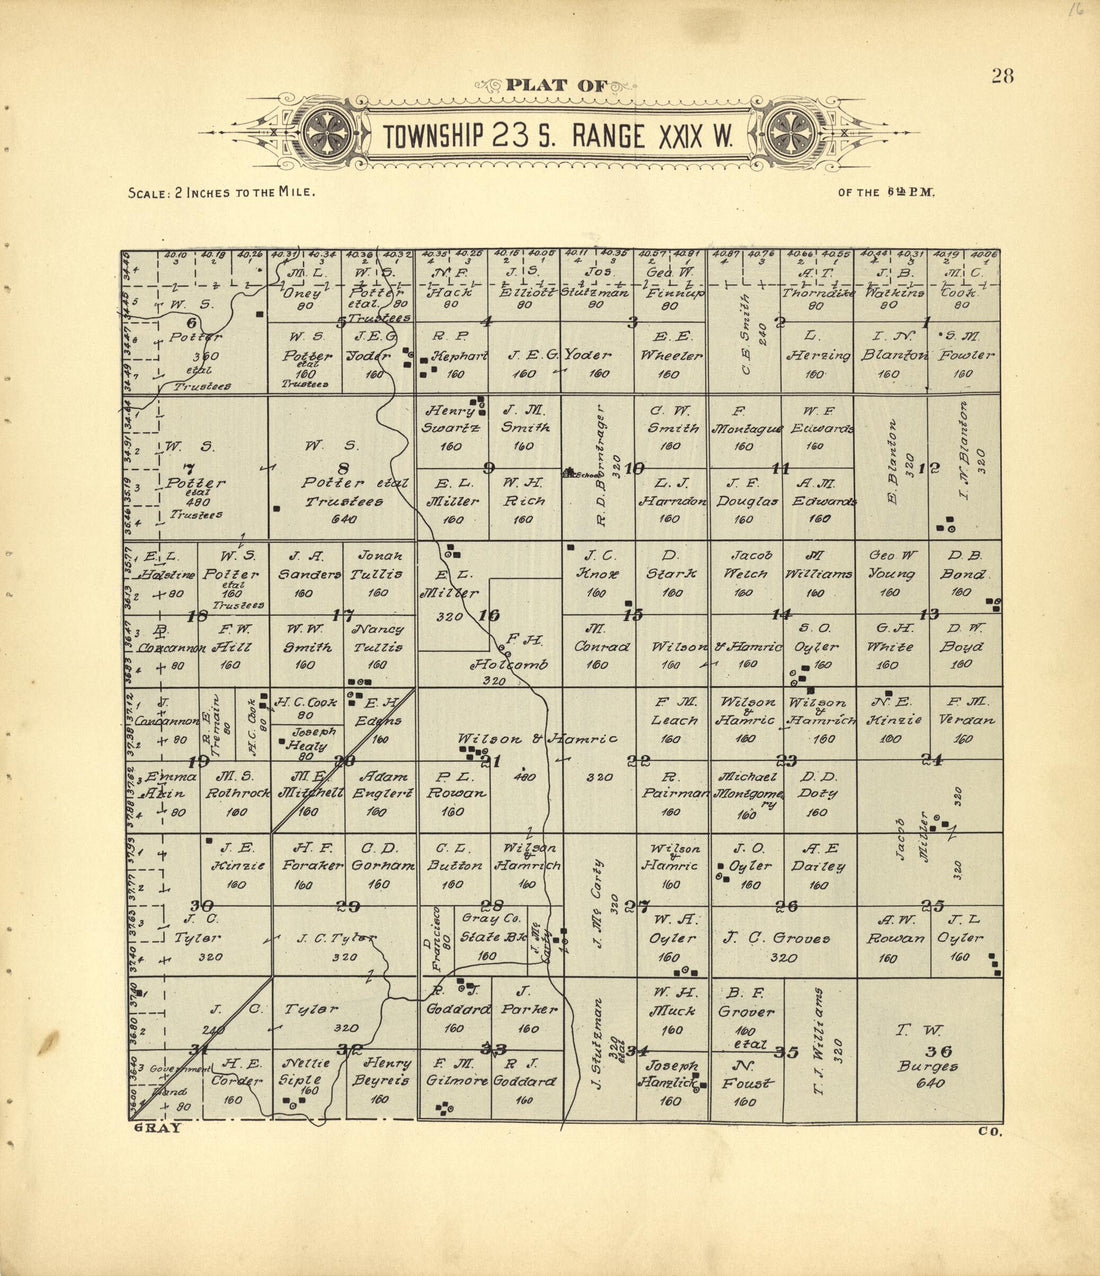 16
28
PLAT OF
TOWNSHIP 23 S. RANGE XXIX W.
SCALE: 2 INCHES TO THE MILE.
OF THE 6th P.M.
W. S.
6
Potter
360
etal
Trustees
M. L.
Oney
80
W. S.
Potter
etal. 80
Trustees
5
W. S.
Potter
etal
160
Trustees
J.E.G.
Yoder
160
N. F.
Hack
80
J. S.
Elliott
80
4
R. P.
Kephart
160
J. E. G. Yoder
160
160
Jos.
Stutzman
80
Geo. W.
Finnup
80
3
E. E.
Wheeler
160
C E Smith
240
A. T.
Thorndike
80
2
L.
Herzing
160
J. B.
Watkins
80
M. C.
Cook.
80
1
I. N.
Blanton
160
S. M.
Fowler
160
W. S.
7
Potter
etal
480
Trustees
W. S.
8
Potter etal
Trustees
640
Henry
Swartz
160
J. M.
Smith
160
9
E. L.
Miller
160
W. H.
Rich
160
School
R. D. Borntrager
320
C. W.
Smith
160
10
L. J.
Harndon
160
F.
Montague
160
W. F
Edwards
160
11
J. F.
Douglas
160
A. M.
Edwards
160
E. Blanton
320
12
I. N. Blanton
320
E. L.
Holstine
80
W. S.
Potter
etal
160
Trustees
18
B.
Concannon
80
F. W.
Hill
160
J. A.
Sanders
160
Jonah
Tullis
160
17
W. W.
Smith
160
Nancy
Tullis
160
E. L.
Miller
320
16
F. H.
Holcomb
320
J. C.
Knox
160
D.
Stark
160
15
M.
Conrad
160
Wilson & Hamric
160
160
Jacob
Welch
160
M
Williams
160
14
S. O.
Oyler
160
Geo W
Young
160
D. B.
Bond.
160
13
G. H.
White
160
D. W.
Boyd
160
J.
Concannon
80
R. E.
Tremain
80
H.C. Cook
80
19
Emma
Akin
80
M. S.
Rothrock
160
H. C. Cook
80
Joseph
Healy
80
E. H.
Edens
160
20
M E.
Mitchell
160
Adam
Englert
160
Wilson & Hamric
21
480
320
P. L.
Rowan
160
F. M.
Leach
160
22
R.
Pairman
160
Wilson
&
Hamric
160
Wilson
&
Hamrich
160
23
Michael
Montgomery
160
D. D.
Doty
160
N. E.
Kinzie
160
F. M.
Verdan
160
24
Jacob
Miller
320
320
J. E.
Kinzie
160
30
J. C.
Tyler
320
H. F.
Foraker
160
C. D.
Gorham
160
29
J. C. Tyler
320
C. L.
Button
160
Wilson
&
Hamrich
160
28
D
Francisco
80
Gray Co.
State Bk
160
J. Mc
Carty
J. Mc Carty
320
Wilson
&
Hamric
160
27
W. A.
Oyler
160
J. O.
Oyler
160
A. E
Dailey
160
26
J. C. Groves
320
25
A. W.
Rowan
160
J. L
Oyler
160
J. C.
240
31
Government
Land
80
H. E.
Corder
160
Tyler
320
32
Nellie
Siple
160
Henry
Beyreis
160
R. J.
Goddard
160
J.
Parker
160
33
F. M.
Gilmore
160
R J.
Goddard
160
J. Stutzman
etal
320
W. H.
Muck
160
34
Joseph
Hanzlick
160
B. F.
Grover
160
etal
N.
Foust
160
35
T. J. Williams
320
T. W.
36
Burges
640
GRAY
CO.